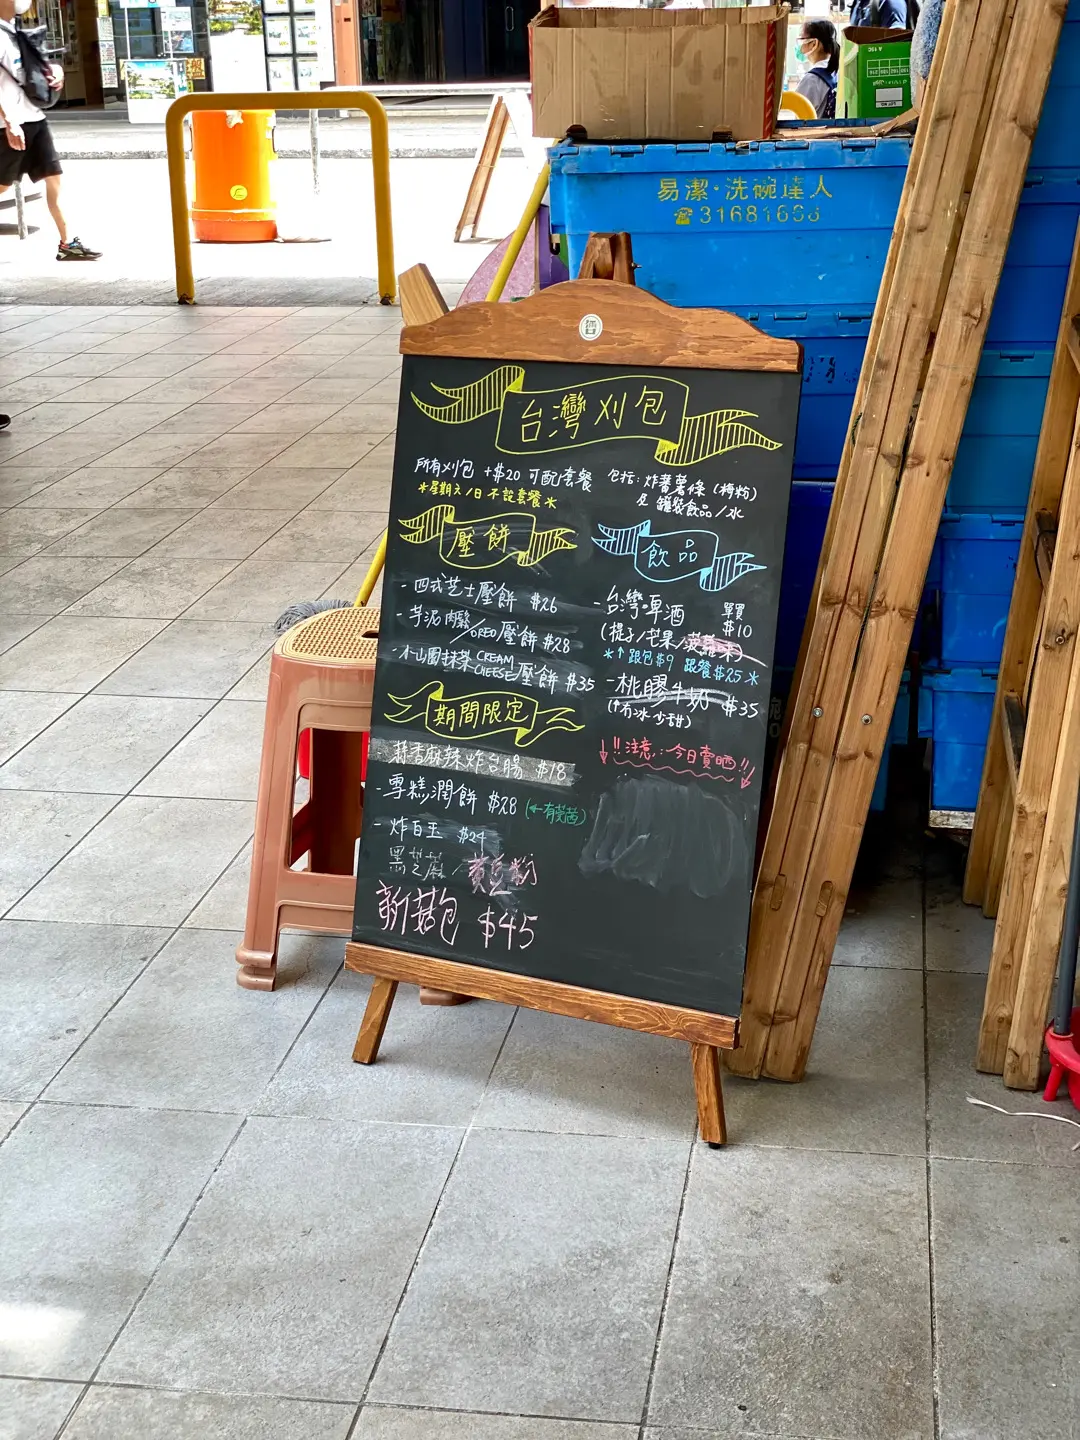 易潔·洗碗達人
☎31681668
台灣刈包
所有刈包 +$20 可配套餐
*星期六/日 不設套餐*
包括: 炸蕃薯條 (梅粉)
及 罐裝飲品/水
壓餅
- 四式芝士壓餅 $26
- 芋泥肉鬆/OREO壓餅 $28
- 小山園抹茶CREAM CHEESE壓餅 $35
飲品
- 台灣啤酒 單買 $10
(提子/芒果/菠蘿味)
*↑ 跟包$9 跟餐$25*
- 桃膠牛奶 $35
(冇冰 少甜)
!!注意: 今日賣晒!!
期間限定
蒜香麻辣炸台腸 $18
- 雪糕潤餅 $28 (←有芫茜)
- 炸白玉 $24
黑芝麻/黃豆粉
新菇包 $45